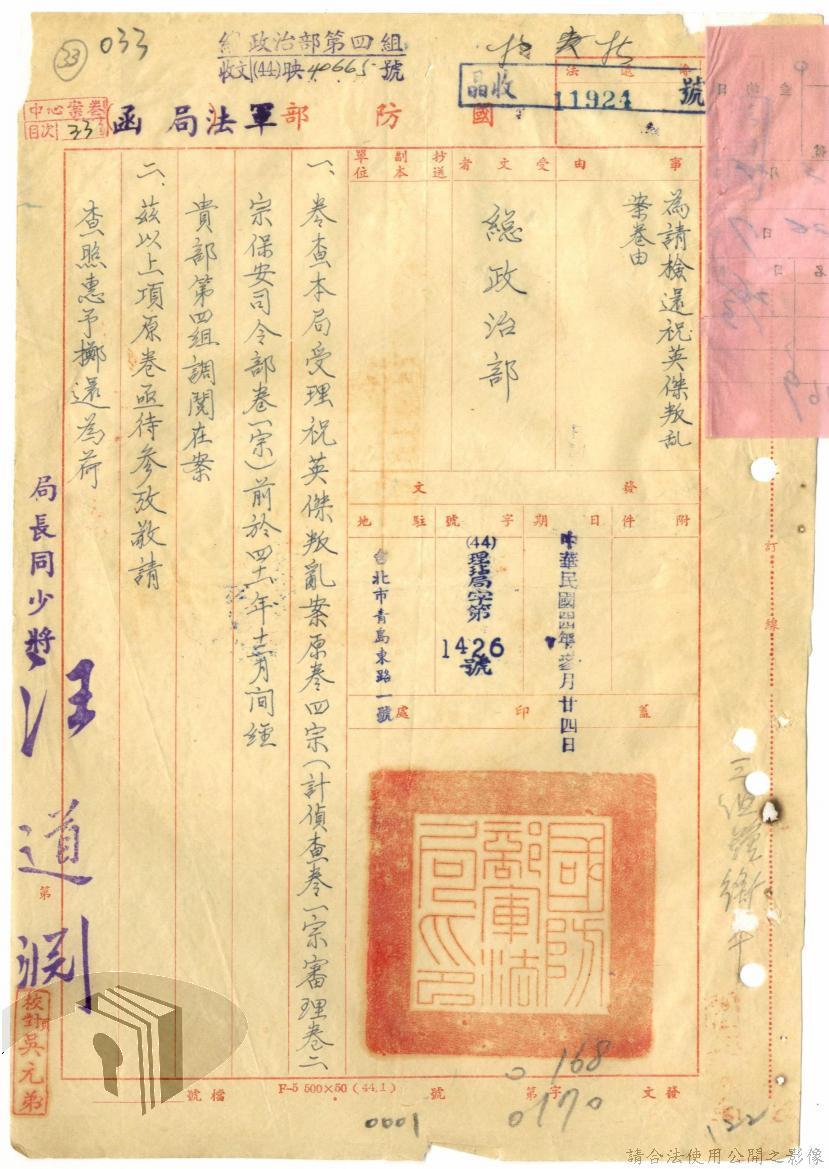 33
033
總政治部第四組
收文(44)映40665號
晶收
11924
號
中心案卷
目次 33
國防部軍法局函
事由
為請檢還祝英傑叛乱
案卷由
受文者
總政治部
抄送
副本
單位
發文
附件
日期
中華民國四四年參月廿四日
字號
(44)理局字第
1426
號
駐地
台北市青島東路一號
蓋印處
國防部軍法局印
一、卷查本局受理祝英傑叛亂案原卷四宗(計偵查卷一宗審理卷二
宗保安司令部卷一宗)前於四十一年十二月間經
貴部第四組調閱在案
二、茲以上項原卷亟待參攷敬請
查照惠予擲還為荷
局長同少將
汪道淵
第
校對吳元弟
訂線
發文
字第
號
檔號
F-5 500×50 (44.1)
168
0170
0001
122
請合法使用公開之影像